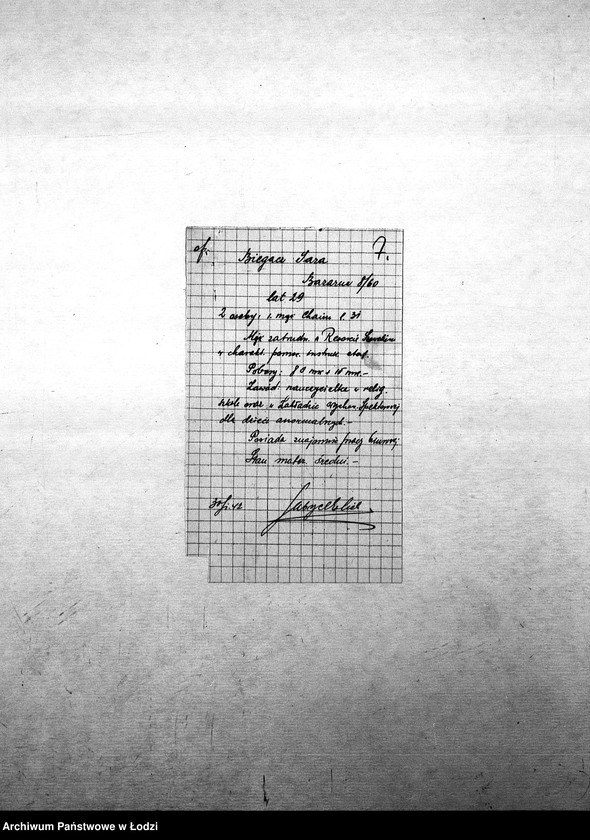 7.
Biegacz Sara
8/60
lat 29
2 osoby: 1. mąż Chaim l. 31
Mąż zatrudn. w Resorcie
w charakt. pomoc. instrukt. etat.
Pobory: 80 mk + 15 mk.–
Zawód: nauczycielka w relig.
szkole oraz w Zakładzie wychow.
dla dzieci anormalnych.–
Posiada znajomość pracy biurowej
Stan mater. średni.–
42
Archiwum Państwowe w Łodzi